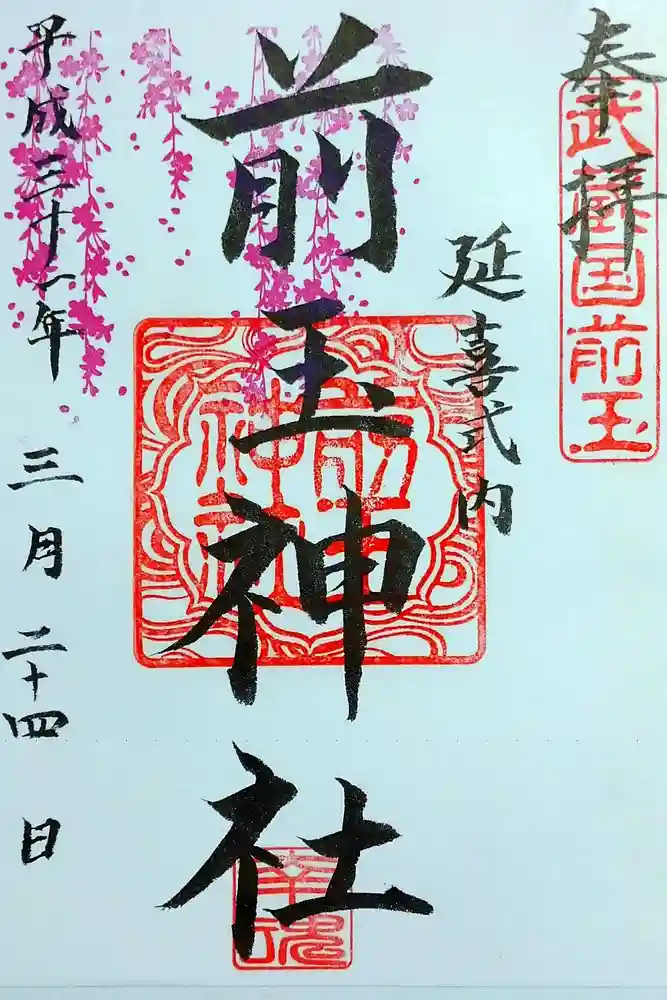 奉拝
武蔵国前玉
延喜式内
前玉神社
前玉神社
幸魂
平成三十一年
三月二十四日